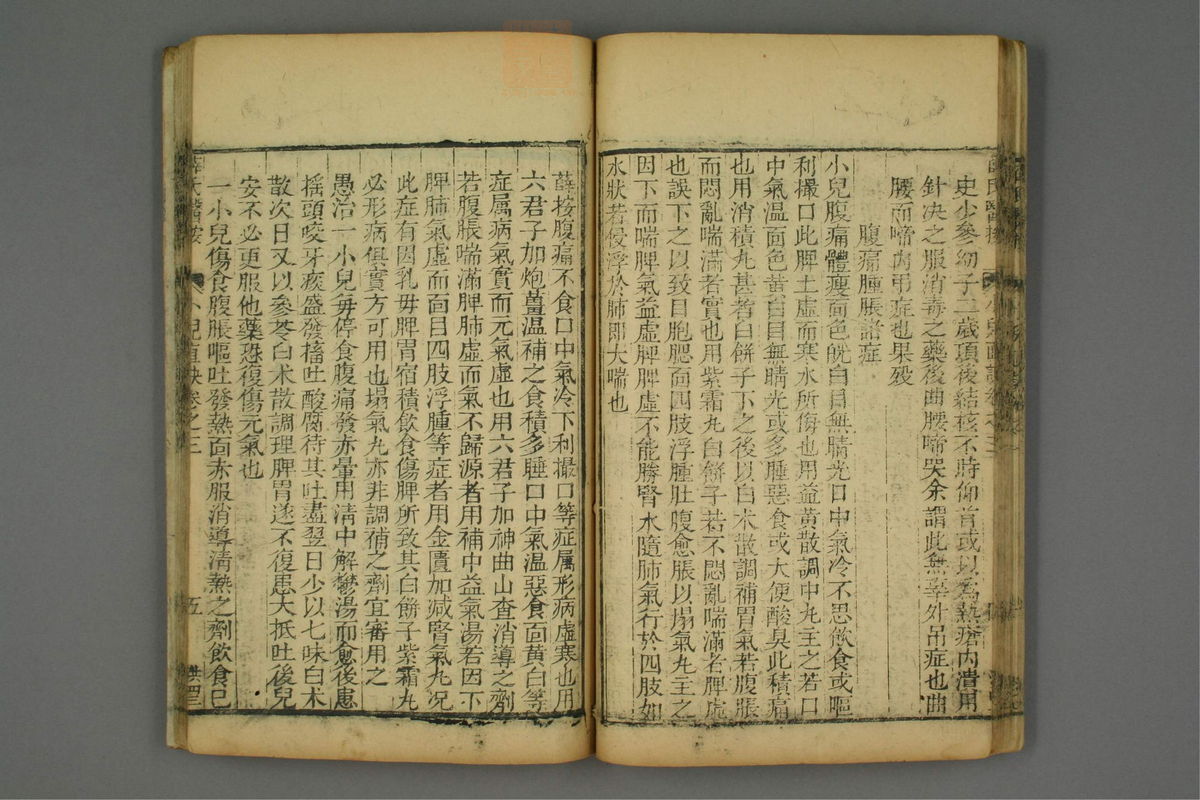 史少參幼子二歲項後結核不時仰首或以爲熱瘡內潰用
針決之服消毒之藥後曲腰啼哭余謂此無辜外吊症也曲
腰而啼內吊症也果歿
腹痛腫脹諸症
小兒腹痛體瘦面色㿠白目無睛光口中氣冷不思飲食或嘔
利撮口此脾土虛而寒水所侮也用益黃散調中丸主之若口
中氣温面色黃白目無睛光或多睡惡食或大便酸臭此積痛
也用消積丸甚者白餅子下之後以白术散調補胃氣若腹脹
而悶亂喘滿者實也用紫霜丸白餅子若不悶亂喘滿者脾虛
也誤下之以致目胞腮面四肢浮腫肚腹愈脹以塌氣丸主之
因下而喘脾氣益虛脾脾虛不能勝腎水隨肺氣行於四肢如
水狀若侵浮於肺即大喘也
薛按腹痛不食口中氣冷下利撮口等症属形病虛寒也用
六君子加炮薑温補之食積多睡口中氣温惡食面黃白等
症属病氣實而元氣虛也用六君子加神曲山查消導之劑
若腹脹喘滿脾肺虛而氣不歸源者用補中益氣湯若因下
脾肺氣虛而面目四肢浮腫等症者用金匱加減腎氣丸况
此症有因乳母脾胃宿積飲食傷脾所致其白餅子紫霜丸
必形病俱實方可用也塌氣丸亦非調補之劑宜審用之
愚治一小兒每停食腹痛發赤暈用清中解鬱湯而愈後患
搖頭咬牙痰盛發搐吐酸腐待其吐盡翌日少以七味白术
散次日又以參苓白术散調理脾胃遂不復患大抵吐後兒
安不必更服他藥恐復傷元氣也
一小兒傷食腹脹嘔吐發熱面赤服消導清熱之劑飲食已
薛氏醫按 小兒直訣卷之三 五